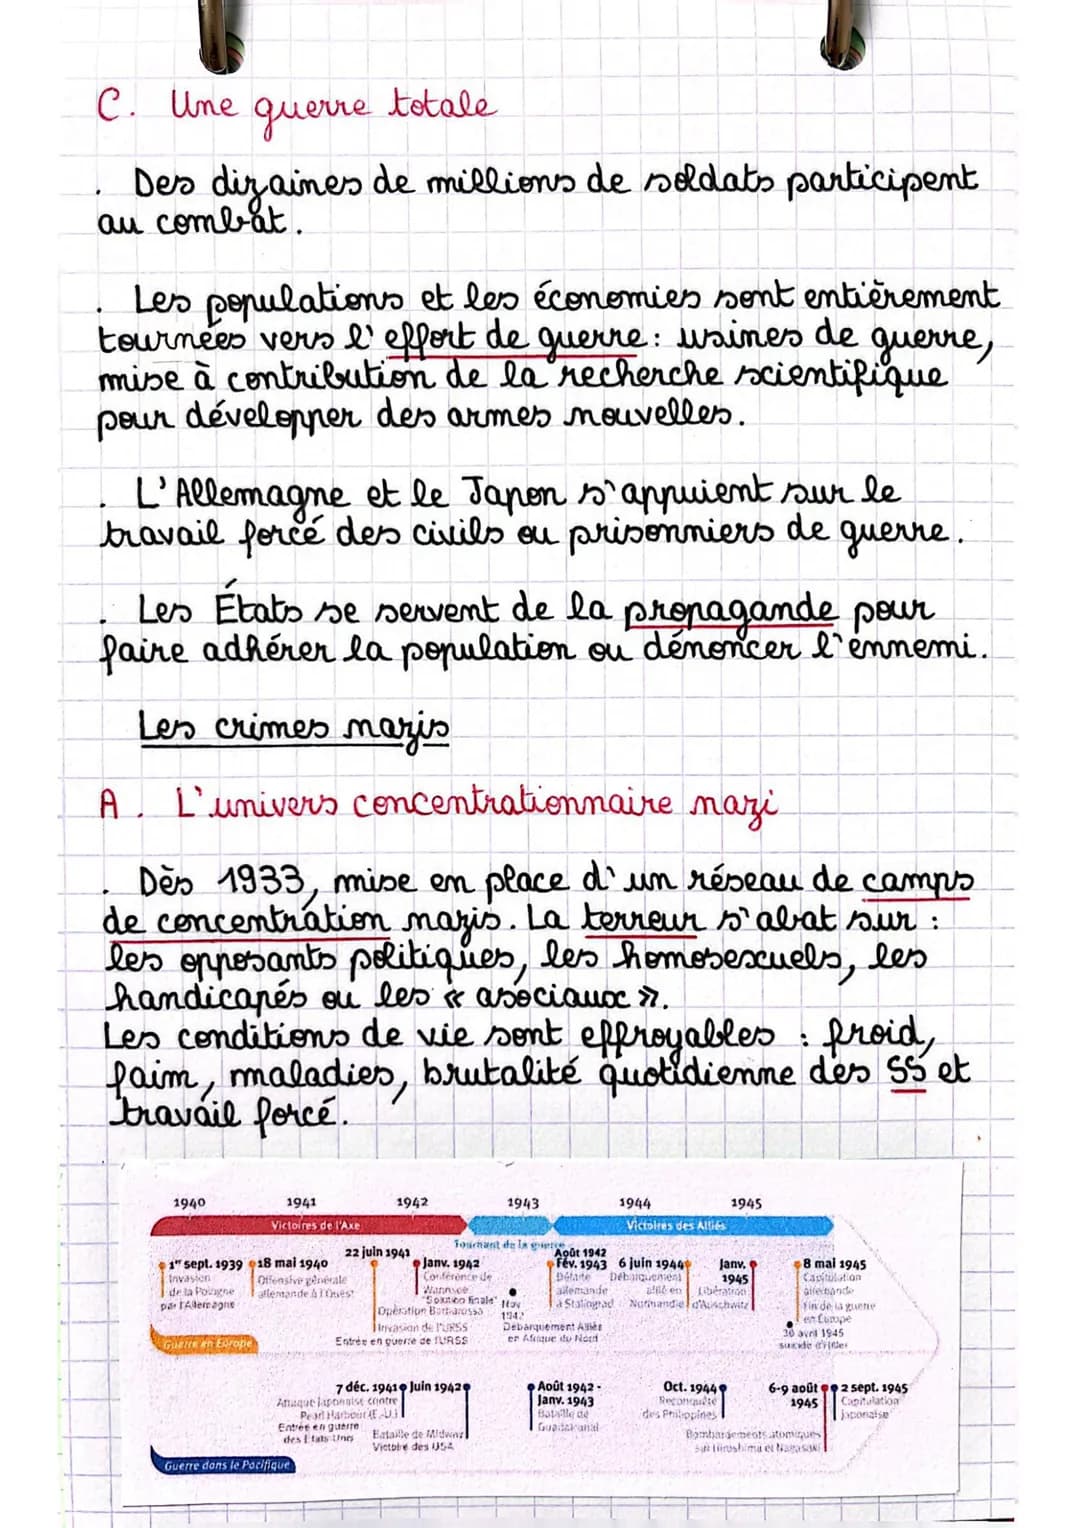 C. Une guerre totale
. Des dizaines de millions de soldats participent
au combat.
. Les populations et les économies sont entièrement
tournées vers l'effort de guerre : usines de guerre,
mise à contribution de la recherche scientifique
pour développer des armes nouvelles.
. L'Allemagne et le Japon s'appuient sur le
travail forcé des civils ou prisonniers de guerre.
. Les États se servent de la propagande pour
faire adhérer la population ou dénoncer l'ennemi.
Les crimes nazis
A. L'univers concentrationnaire nazi
. Dès 1933, mise en place d'un réseau de camps
de concentration nazis. La terreur s'abat sur :
les opposants politiques, les homosexuels, les
handicapés ou les « asociaux ».
Les conditions de vie sont effroyables : froid,
faim, maladies, brutalité quotidienne des SS et
travail forcé.
1940 1941 1942 1943 1944 1945
Victoires de l'Axe
Tournant de la guerre
Victoires des Alliés
1er sept. 1939
Invasion
de la Pologne
par l'Allemagne
18 mai 1940
Offensive générale
allemande à l'Ouest
22 juin 1941
Opération Barbarossa
Invasion de l'URSS
Entrée en guerre de l'URSS
Janv. 1942
Conférence de
Wannsee
"Solution finale"
Nov
1942
Débarquement Alliés
en Afrique du Nord
Août 1942
Fév. 1943
Défaite
allemande
à Stalingrad
6 juin 1944
Débarquement
allié en
Normandie
Janv.
1945
Libération
d'Auschwitz
8 mai 1945
Capitulation
allemande
Fin de la guerre
en Europe
30 avril 1945
suicide d'Hitler
Guerre en Europe
7 déc. 1941
Attaque japonaise contre
Pearl Harbour (É.-U.)
Entrée en guerre
des États-Unis
Juin 1942
Bataille de Midway
Victoire des USA
Août 1942 -
Janv. 1943
Bataille de
Guadalcanal
Oct. 1944
Reconquête
des Philippines
6-9 août
1945
Bombardements atomiques
sur Hiroshima et Nagasaki
2 sept. 1945
Capitulation
japonaise
Guerre dans le Pacifique